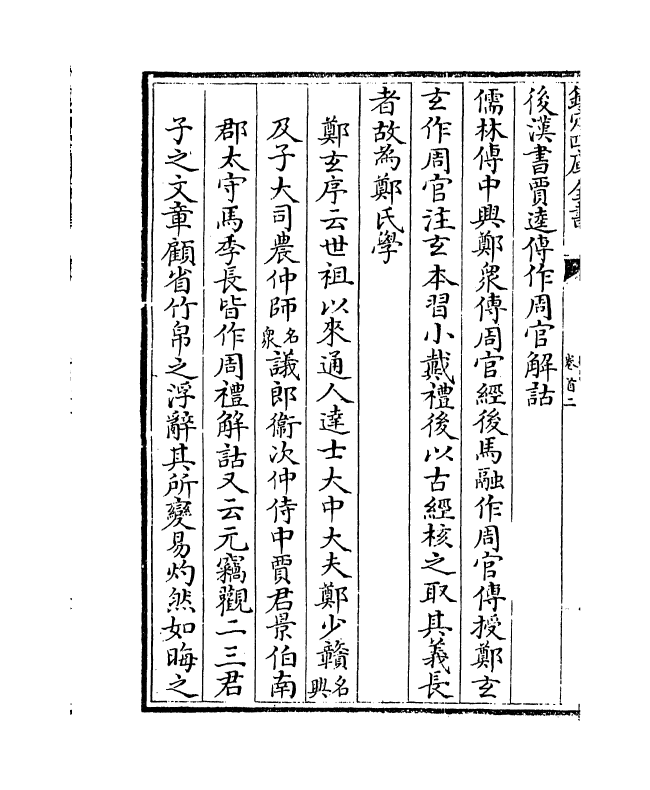 欽定四庫全書
卷首二
後漢書賈逵傳作周官解詁
儒林傳中興鄭衆傳周官經後馬融作周官傳授鄭玄
玄作周官注玄本習小戴禮後以古經核之取其義長
者故為鄭氏學
鄭玄序云世祖以來通人達士大中大夫鄭少贛名興
及子大司農仲師名衆議郎衛次仲侍中賈君景伯南
郡太守馬季長皆作周禮解詁又云元竊觀二三君
子之文章顧省竹帛之浮辭其所變易灼然如晦之